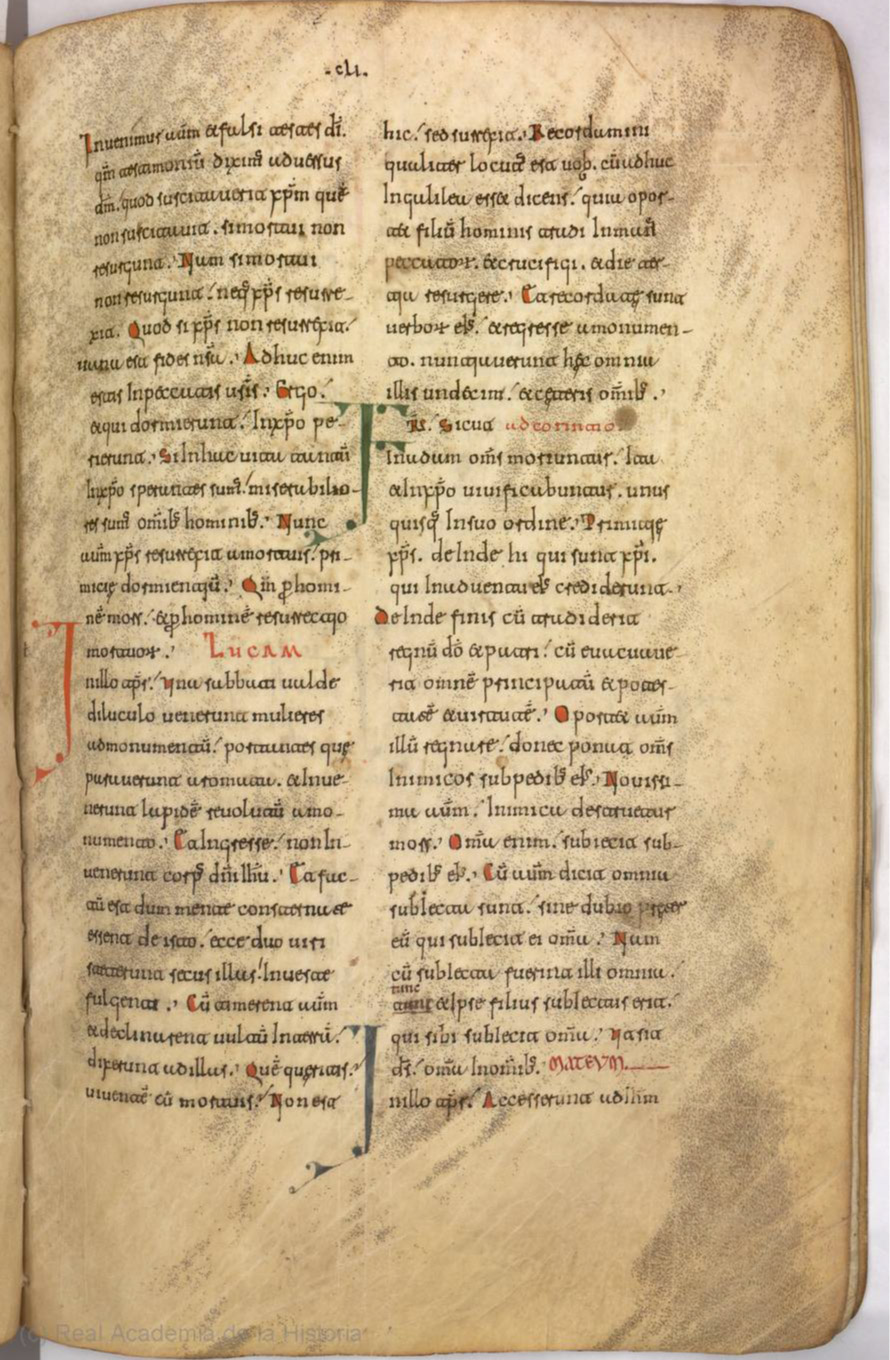 .cli.
Inuenimus aūm & falsi testes dī.
qm̄ testimoniū diximꝰ aduersus
dm̄. quod suscitauerit xp̄m quē
non suscitauit. si mortui non
resurgunt. Nam si mortui
non resurgunt. neq; xp̄s resurre-
xit. Quod si xp̄s non resurrexit.
uana est fides nsā. Adhuc enim
estis In peccatis usīs. Ergo.
& qui dormierunt. In xp̄o pe-
rierunt. Si In hac uita tantū
In xp̄o sperantes sumꝰ. miserabilio-
res sumꝰ omīb; hominib;. Nunc
aūm xp̄s resurrexit a mortuis. pri-
micię dormientiū. Qm̄ ꝑ homi-
nē mors. & ꝑ hominē resurrectio
mortuorꝝ. LUCAM
In illo tp̄r. Una sabbati ualde
diluculo uenerunt mulieres
ad monumentū. portantes quę
parauerant aromata. & Inue-
nerunt lapidē reuolutū a mo-
numento. Et Ingresse. non In-
uenerunt corpꝰ dn̄i ihū. Et fac-
tū est dum mente consternate
essent de isto. ecce duo uiri
steterunt secus illas. In ueste
fulgenti. Cū timerent aūm
& declinarent uultū In terrā.
dixerunt ad illas. Quē queritis.
uiuentē cū mortuis. Non est
hic. sed surrexit. Recordamini
qualiter locutꝰ est uob. cū adhuc
In galilea esset dicens. quia opor-
tet filiū hominis tradi In manꝰ
peccatorꝝ. & crucifigi. & die ter-
tia resurgere. Et recordatę sunt
uerborꝝ eꝰ. & regresse a monumen-
to. nuntiauerunt hęc omnia
illis undecim. & cęteris omīb;.
FR̄. Sicut ad corintio
In adam oms̄ moriuntur. Ita
& In xp̄o uiuificabuntur. unus
quisq; In suo ordine. Primitię
xp̄s. deInde hi qui sunt xp̄i.
qui In aduentu eꝰ crediderunt.
DeInde finis cū tradiderit
regnū dō & patri. cū euacuaue-
rit omnē principatū & potes-
tatē & uirtutē. Oportet aūm
illū regnare. donec ponat oms̄
Inimicos sub pedib; eꝰ. Nouissi-
ma aūm. Inimica destruetur
mors. Omīa enim. subiecit sub-
pedib; eꝰ. Cū aūm dicit omnia
subIecta sunt. sine dubio preter
eū qui subIecit ei omīa. Nam
cū subIecta fuerint illi omnia.
tunc
tunc & Ipse filius subIectus erit.
qui sibi subIecit omīa. Ut sit
ds̄. omīa In omīb;. MATEUM.
In illo tp̄r. Accesserunt ad ihm̄
(c) Real Academia de la Historia